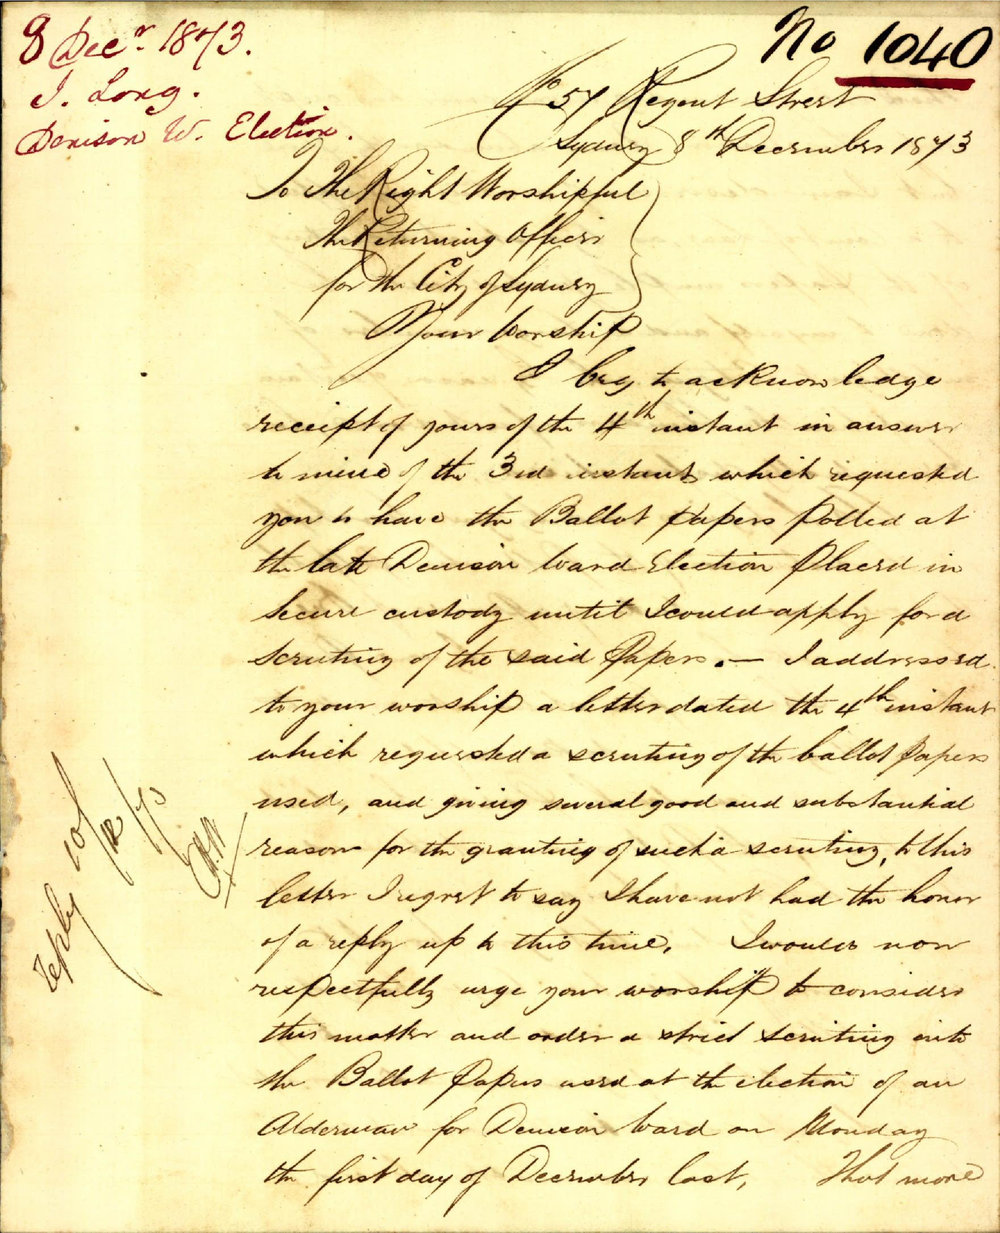 8 Decr 1873.
J. Long.
Denison W. Election.
No 1040
No 57 Regent Street
Sydney 8th December 1873
To The Right Worshipful
The Returning Officer
for the City of Sydney
Your Worship
I beg to acknowledge
receipt of yours of the 4th instant in answer
to mine of the 3rd instant which requested
you to have the Ballot papers polled at
the late Denison Ward Election placed in
secure custody until I could apply for a
scrutiny of the said Papers. — I addressed
to your worship a letter dated the 4th instant
which requested a scrutiny of the ballot papers
used, and giving several good and substantial
reasons for the granting of such a scrutiny, to this
letter I regret to say I have not had the honor
of a reply up to this time. I would now
respectfully urge your worship to consider
this matter and order a strict scrutiny into
the Ballot Papers used at the election of an
Alderman for Denison Ward on Monday
the first day of December last, That more
reply 10/12/73